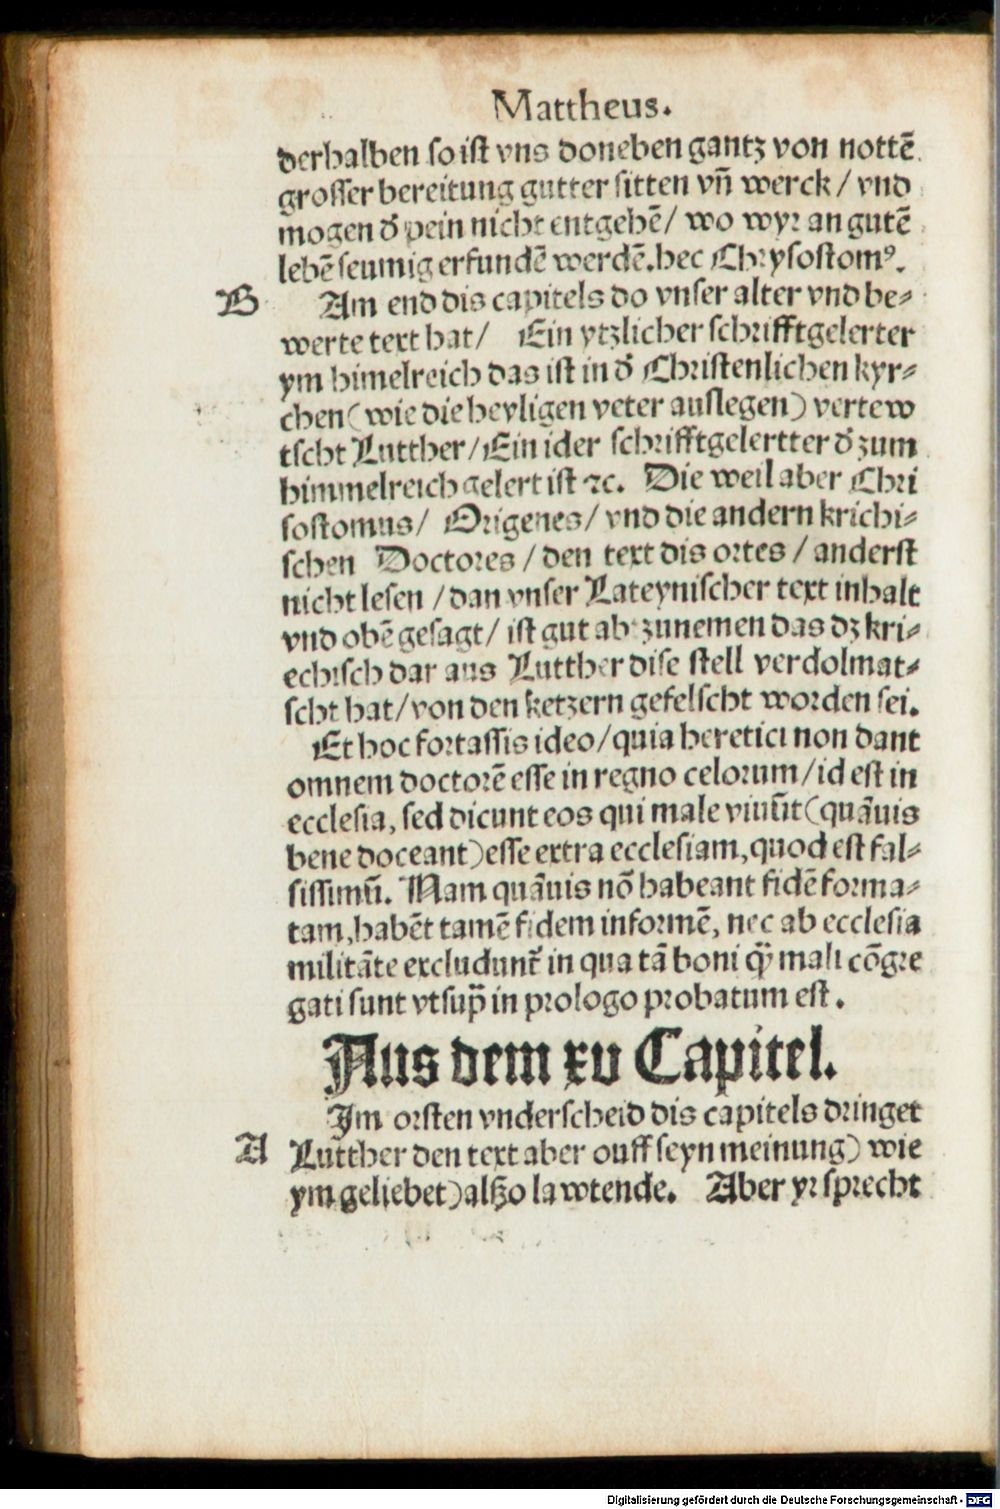 Mattheus.
derhalben so ist vns doneben gantz von nottē
grosser bereitung gutter sitten vn̄ werck / vnd
mogen d̕ pein nicht entgehē / wo wyr an gutē
lebē seumig erfundē werdē. hec Chrysostomꝰ.
B Am end dis capitels do vnser alter vnd be⸗
werte text hat / Ein ytzlicher schrifftgelerter
ym himelreich das ist in d̕ Christenlichen kyr⸗
chen (wie die heyligen veter auslegen) vertew
tscht Lutther / Ein ider schrifftgelertter d̕ zum
himmelreich gelert ist ⁊c. Die weil aber Chri
sostomus / Origenes / vnd die andern krichi⸗
schen Doctores / den text dis ortes / anderst
nicht lesen / dan vnser Lateynischer text inhalt
vnd obē gesagt / ist gut ab zunemen das dz kri⸗
echisch dar aus Lutther dise stell verdolmat⸗
scht hat / von den ketzern gefelscht worden sei.
Et hoc fortassis ideo / quia heretici non dant
omnem doctorē esse in regno celorum / id est in
ecclesia, sed dicunt eos qui male viuūt (quāuis
bene doceant) esse extra ecclesiam, quod est fal⸗
sissimū. Nam quāuis nō habeant fidē forma⸗
tam, habēt tamē fidem informē, nec ab ecclesia
militāte excludunt᷑ in qua tā boni qꝫ mali cōgre
gati sunt vt sup̄ in prologo probatum est.
Aus dem xv Capitel.
Im orsten vnderscheid dis capitels dringet
A Lutther den text aber ouff seyn meinung) wie
ym geliebet) alßo lawtende. Aber yr sprecht
Digitalisierung gefördert durch die Deutsche Forschungsgemeinschaft - DFG